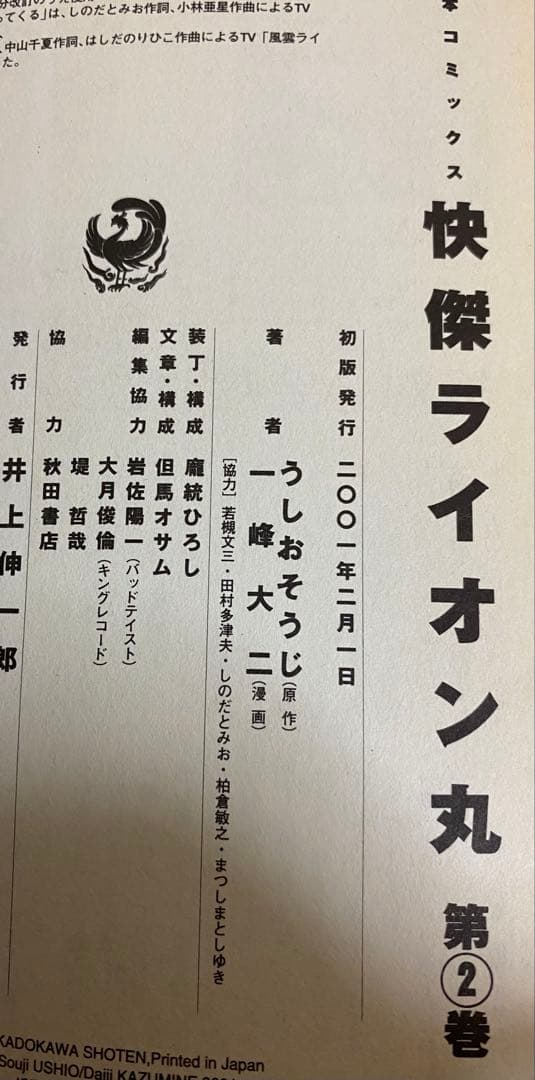 ってくる」は、しのだとみお作詞、小林亜星作曲によるTV
中山千夏作詞、はしだのりひこ作曲によるTV「風雲ライ
た。
本コミックス
快傑ライオン丸 第②巻
初版発行 二〇〇一年二月一日
著者 うしおそうじ(原作)
一峰大二(漫画)
[協力]若槻文三・田村多津夫・しのだとみお・柏倉敏之・まつしまとしゆき
装丁・構成 龐統ひろし
文章・構成 但馬オサム
編集協力 岩佐陽一(バッドテイスト)
大月俊倫(キングレコード)
堤哲哉
協力 秋田書店
発行者 井上伸一郎
KADOKAWA SHOTEN,Printed in Japan
Souji USHIO/Daiji KAZUMINE